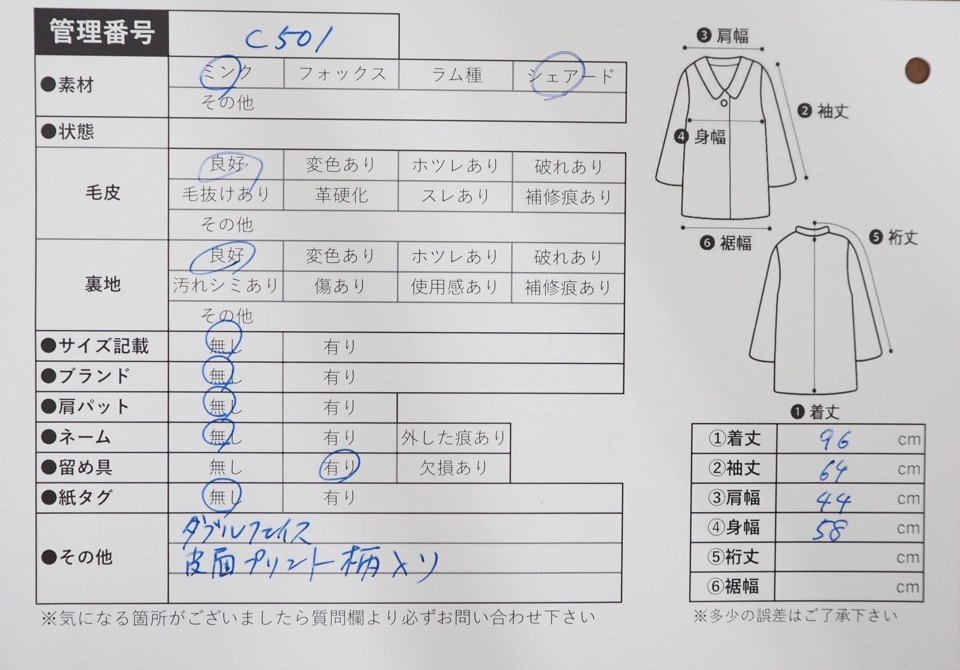 管理番号 C501
●素材 ミンク フォックス ラム種 シェアード
その他
●状態
毛皮 良好 変色あり ホツレあり 破れあり
毛抜けあり 革硬化 スレあり 補修痕あり
その他
裏地 良好 変色あり ホツレあり 破れあり
汚れシミあり 傷あり 使用感あり 補修痕あり
その他
●サイズ記載 無し 有り
●ブランド 無し 有り
●肩パット 無し 有り
●ネーム 無し 有り 外した痕あり
●留め具 無し 有り 欠損あり
●紙タグ 無し 有り
●その他 ダブルフェイス
皮面プリント柄入り
※気になる箇所がございましたら質問欄より必ずお問い合わせ下さい
❸肩幅
❷袖丈
❹身幅
❻裾幅
❺裄丈
❶着丈
①着丈 96 cm
②袖丈 64 cm
③肩幅 44 cm
④身幅 58 cm
⑤裄丈 cm
⑥裾幅 cm
※多少の誤差はご了承下さい